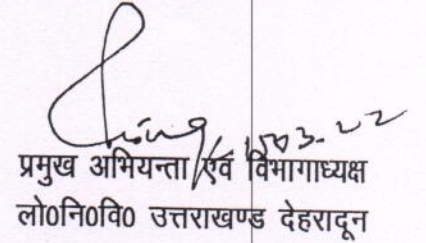 प्रमुख अभियन्ता एवं विभागाध्यक्ष
लो0नि0वि0 उत्तराखण्ड देहरादून